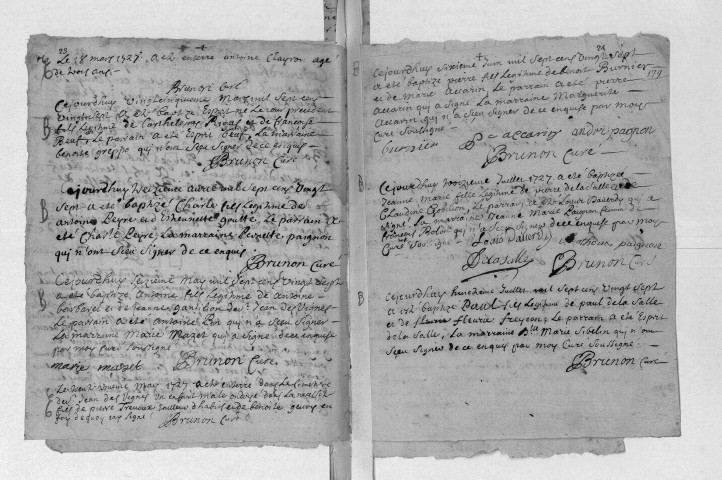 23
Le 28 mars 1727 a été enterré antoine Clayron agé
de trois ans.
Brunon Curé
Cejourdhuy vingtcinquieme Mars mil sept cens
vingtsept a été baptizé Esprit
fils legitime de Barthelemy Rivas et de francoise
Le parrain a été Esprit La marraine
benoite greppo qui n'ont sçeu signer de ce enquis
Brunon Curé
Cejourdhuy treizieme avril mil sept cens vingt
sept a été baptizé Charle fils legitime de
antoine Peyre et Ethiennette goutte, Le parrain a
été Charle Peyre La marraine Pernette paignon
qui n'ont sceu signer de ce enquis
Brunon Curé
Cejourdhuy seizieme May mil sept cens vingt sept
a été baptizé antoine fils legitime de antoine
de St Jean des Vignes
Le parrain a été antoine qui n'a sceu signer
La marraine Marie Mazet qui a signé de ce enquise
par moy curé soussigné
marie mazet Brunon Curé
May 1727 a été enterré dans
de St Jean des Vignes un enfant male ondoyé dans la maison
fils de pierre tailleur d'habits et de benoite
foy de quoy ay signé Brunon Curé
24
Cejourdhuy sixieme Juin mil sept cens vingt sept
a été baptizé pierre fils legitime de benoit Burnier
et de marie accarin, Le parrain a été pierre
accarin qui a signé La marraine Marguerite
accarin qui n'a sceu signer de ce enquise par moy
Curé Soussigné
burnier P accarin andré pagnon
Brunon Curé
Cejourdhuy Juillet 1727 a été baptizée
Jeanne Marie fille legitime de pierre de la salle et de
Claudine Le parrain a été Louis Dalverdy qui a
signé La marraine Jeanne Marie paignon femme de
francois qui n'a sceu signer de ce enquise par moy
Curé Soussigné Louis Dalverdy paignon
Delasalle Brunon Curé
Cejourdhuy huitieme Juillet mil sept cens vingt sept
a été baptizé Paul fils legitime de paul de la salle
et de fleurie Le parrain a été Esprit
de la salle, La marraine Marie Sibelin qui n'ont
sçeu signer de ce enquis par moy Curé Soussigné
Brunon Curé